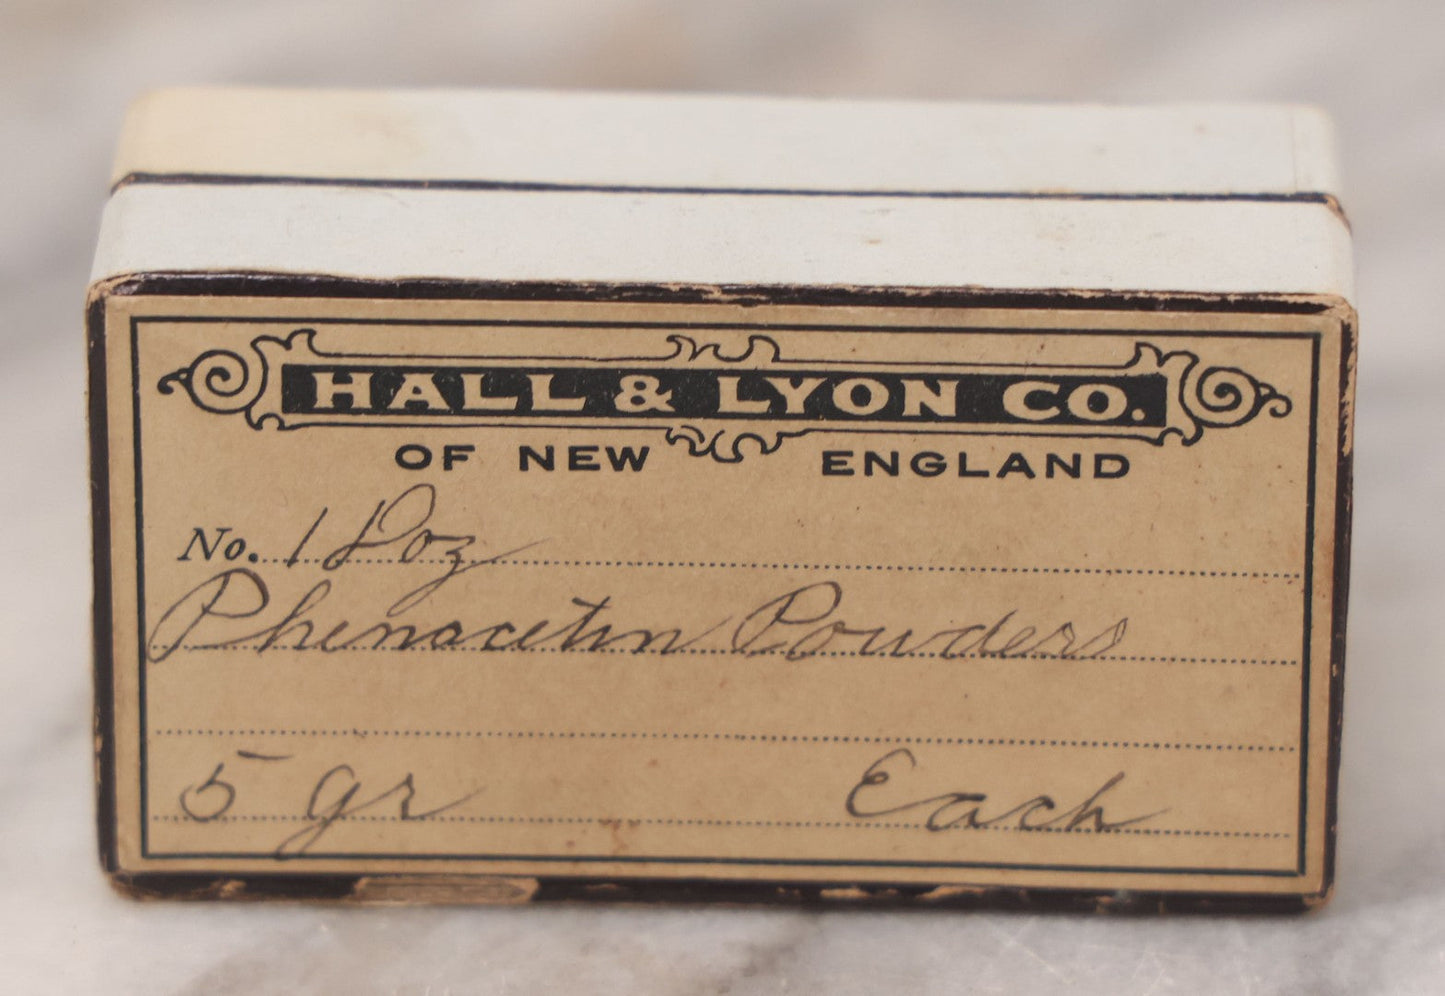 HALL & LYON CO.
OF NEW ENGLAND
No. 1 Doz
Phenacetin Powders
5 gr Each